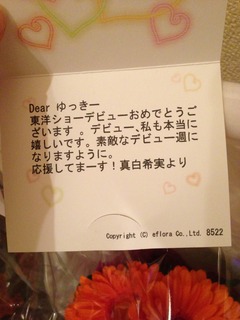 Dear ゆっきー
東洋ショーデビューおめでとうご
ざいます 。デビュー、私も本当に
嬉しいです。素敵なデビュー週に
なりますように。
応援してまーす！真白希実より
Copyright (C) eflora Co.,Ltd. 8522